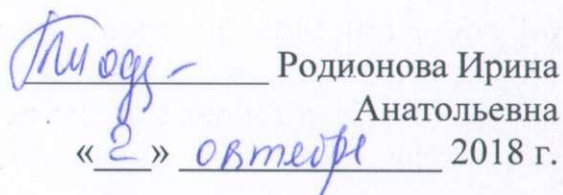 Родионова Ирина
Анатольевна
«2» октября 2018 г.